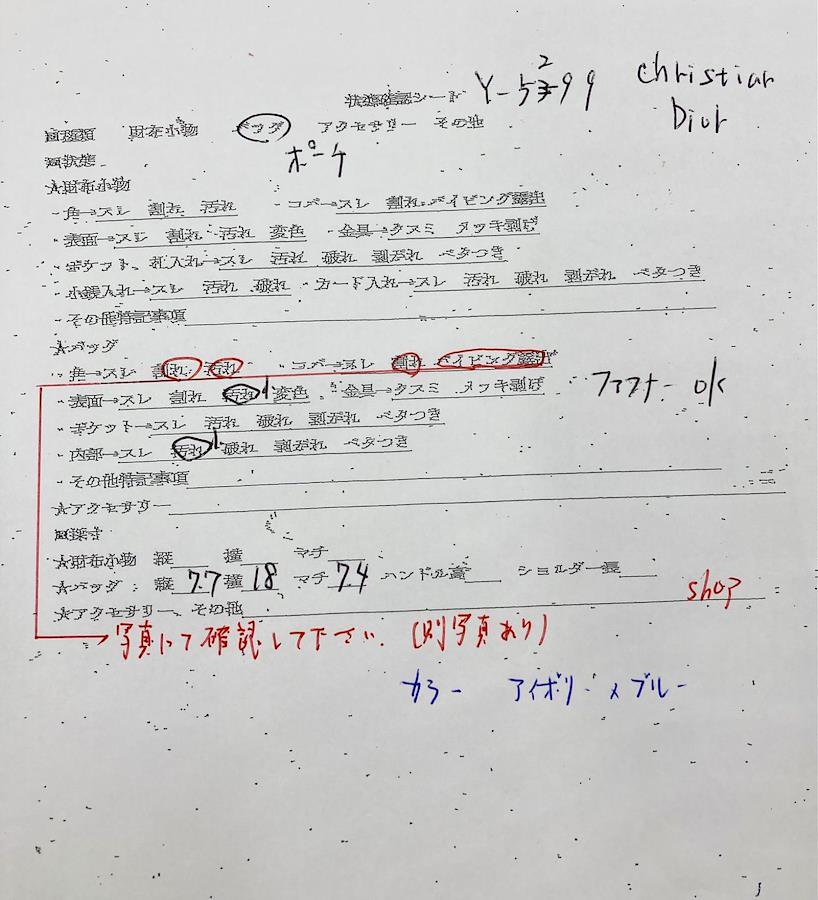 状態確認シート Y-5299 Christian Dior
□種類 財布小物 バッグ アクセサリー その他
□状態 ポーチ
★財布小物
・角→スレ 割れ 汚れ ・コバ→スレ 割れ パイピング露出
・表面→スレ 割れ 汚れ 変色 ・金具→クスミ メッキ剥げ
・ポケット、札入れ→スレ 汚れ 破れ 剥がれ ベタつき
・小銭入れ→スレ 汚れ 破れ ・カード入れ→スレ 汚れ 破れ 剥がれ ベタつき
・その他特記事項
★バッグ
・角→スレ 割れ 汚れ ・コバ→スレ 割れ パイピング露出
・表面→スレ 割れ 汚れ 変色 ・金具→クスミ メッキ剥げ ファスナー ok
・ポケット→スレ 汚れ 破れ 剥がれ ベタつき
・内部→スレ 汚れ 破れ 剥がれ ベタつき
・その他特記事項
★アクセサリー
□採寸
★財布小物 縦 横 マチ
★バッグ 縦 7.7 横 18 マチ 7.4 ハンドル高 ショルダー長
★アクセサリー、その他 shop
写真にて確認して下さい。(別写真あり)
カラー アイボリー×ブルー